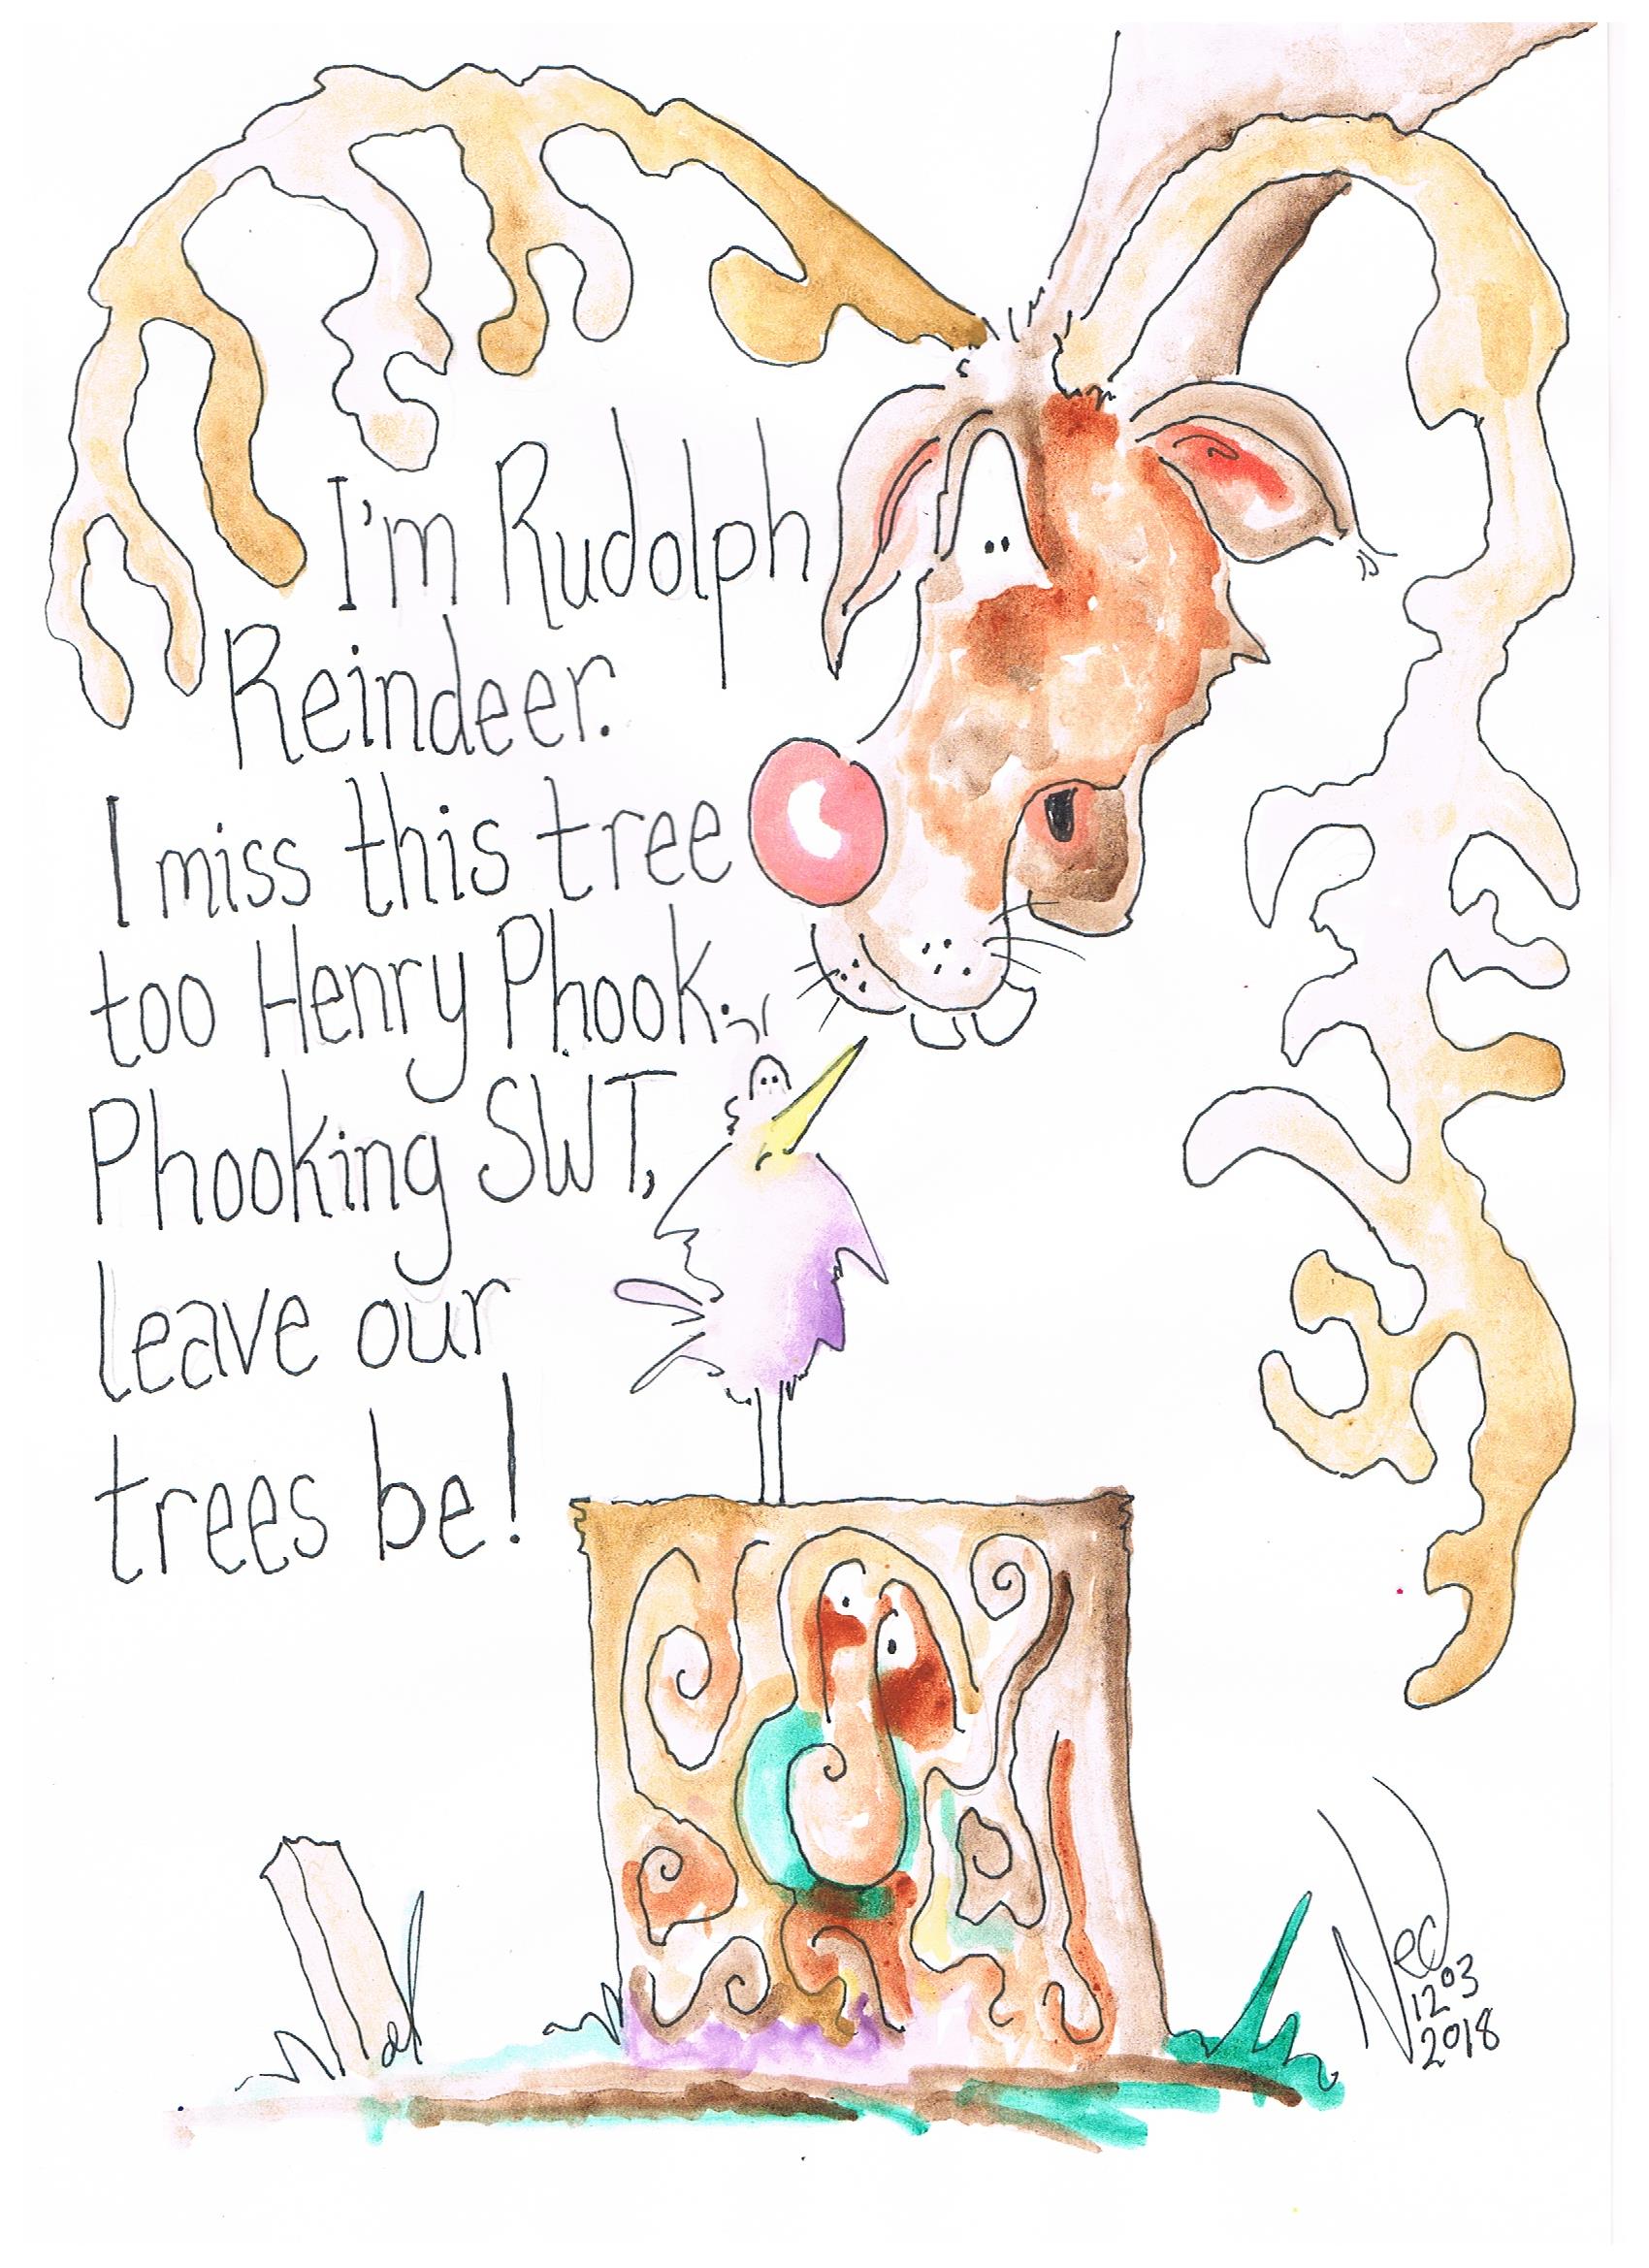 I'm Rudolph
Reindeer.
I miss this tree
too Henry Phook.
Phooking SWT,
leave our
trees be!
Ned
1203
2018